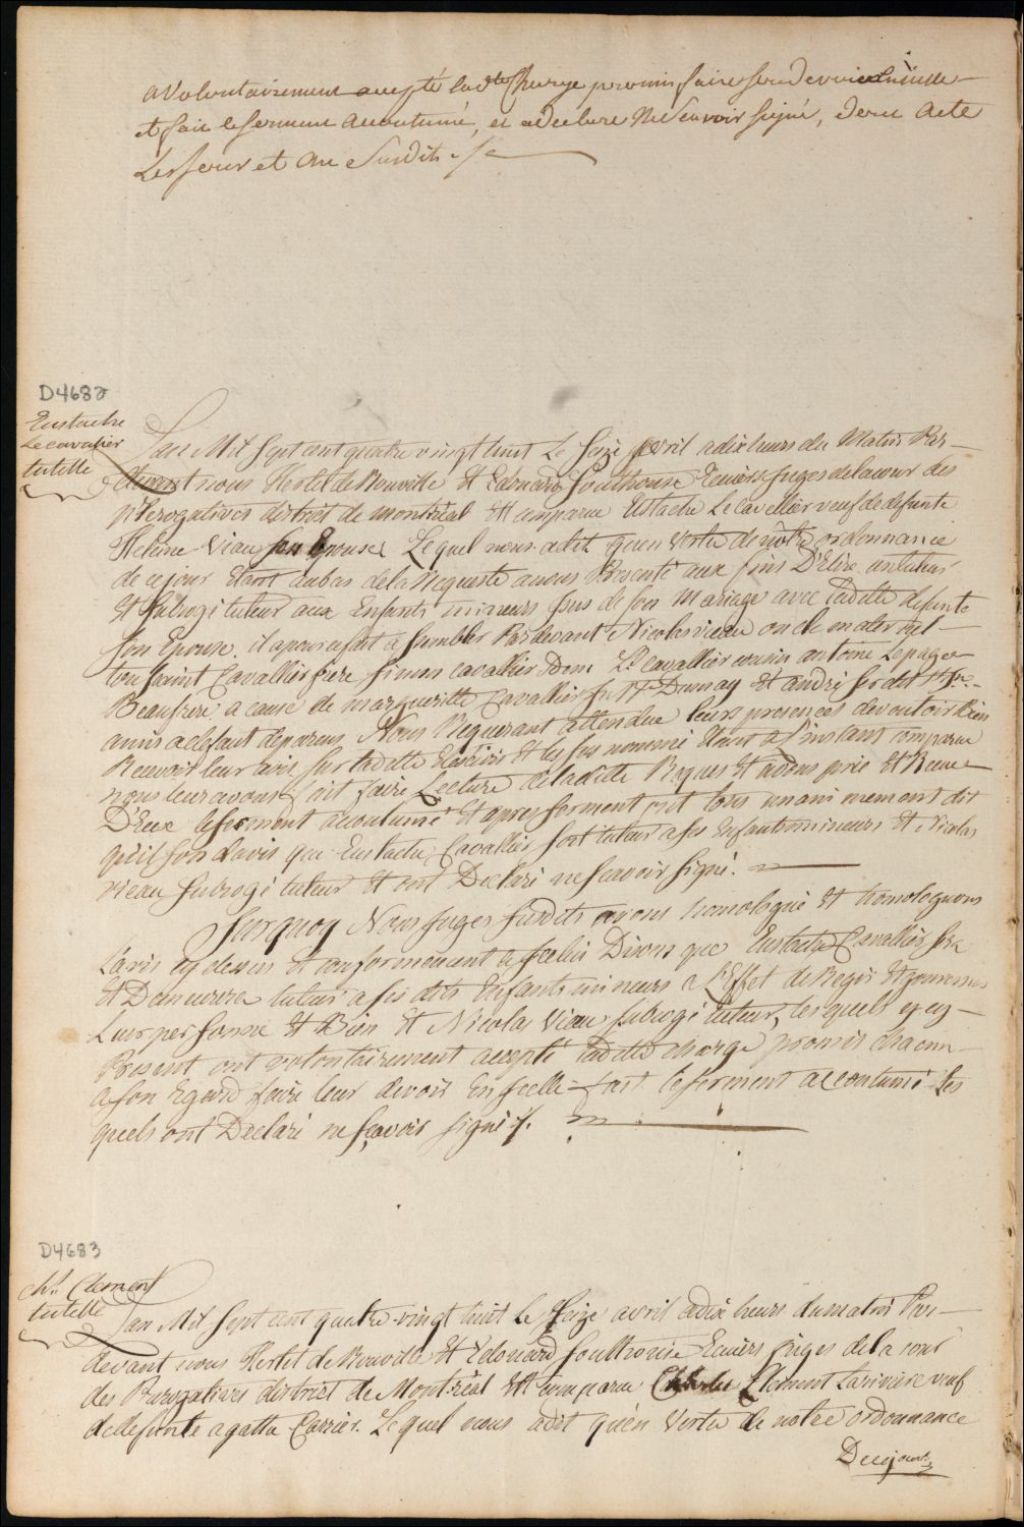 a volontairement accepté ladte Charge promis faire son devoir en icelle
et fait le serment accoutumé, et a declaré ne scavoir signé, dont acte
Les jour et an susdits ./.
D4682
Eustache
Lecavalier
tutelle
Lan Mil sept cent quatre vingt huit Le seize avril a dix heures du Matin Par-
devant nous Hertel de Rouville Et Edouard Southouse Ecuiers Juges de la cour des
prerogatives district de montréal Est comparu Ustache Le Cavellier veuf de defunte
Helene Viau son Epouse Lequel nous a dit qu'en vertu de nôtre ordonnance
de ce jour Etant au bas de la Requeste a nous Presenté aux fins D'Elire un tuteur
Et subrogé tuteur aux Enfants mineurs issus de son Mariage avec ladette defunte
son Epouse. il a pour cet fait assembler Pardevant Nicolas viau oncle maternel
toussaint Cavallier frere simon cavallier Dom. Le cavallier cousin antoine Lepage
Beaufrere a cause de margueritte Cavallier Dumay Et andré
amis a defaut de parens. Nous Requerant attendue leurs presences de vouloir bien
Recevoir leur avis sur ladette Election Et les sus nommé Etant a l'instant comparu
nous leur avons fait faire Lecture de ladette Requeste Et avons pris Et Receu
D'Eux le serment accoutumé Et apres serment ont tous unanimement dit
qu'il son davis que Eustache Cavallier soit tuteur a ses Enfants mineurs Et Nicolas
vieau subrogé tuteur Et ont Declaré ne scavoir signé.
Surquoy Nous Juges susdits avons homologué Et homologuons
Lavis cy dessus Et conformement a icelui Disons que Eustache Cavallier sera
Et Demeurera tuteur a ses dits Enfants mineurs a L'Effet de Regir Et gouverner
Leur personne Et Bien Et Nicolas Viau subrogé tuteur, lesquels y cy-
Présent ont volontairement accepté ladette charge promis chacun
a son Egard faire leur devoir En icelle fait le serment accoutumé Les
quels ont Declaré ne scavoir signé ./.
D4683
Chs. Clement
tutelle
Lan Mil sept cent quatre vingt huit Le seize avril a dix heures du matin Par-
devant nous Hertel de Rouville Et Edouard Southouse Ecuiers juges de la cour
des Prerogatives district de Montréal Est comparu Charles Clement Lariviere veuf
de defunte agatha Carrier. Lequel nous a dit qu'en Vertu de notre ordonnance
De ce jour